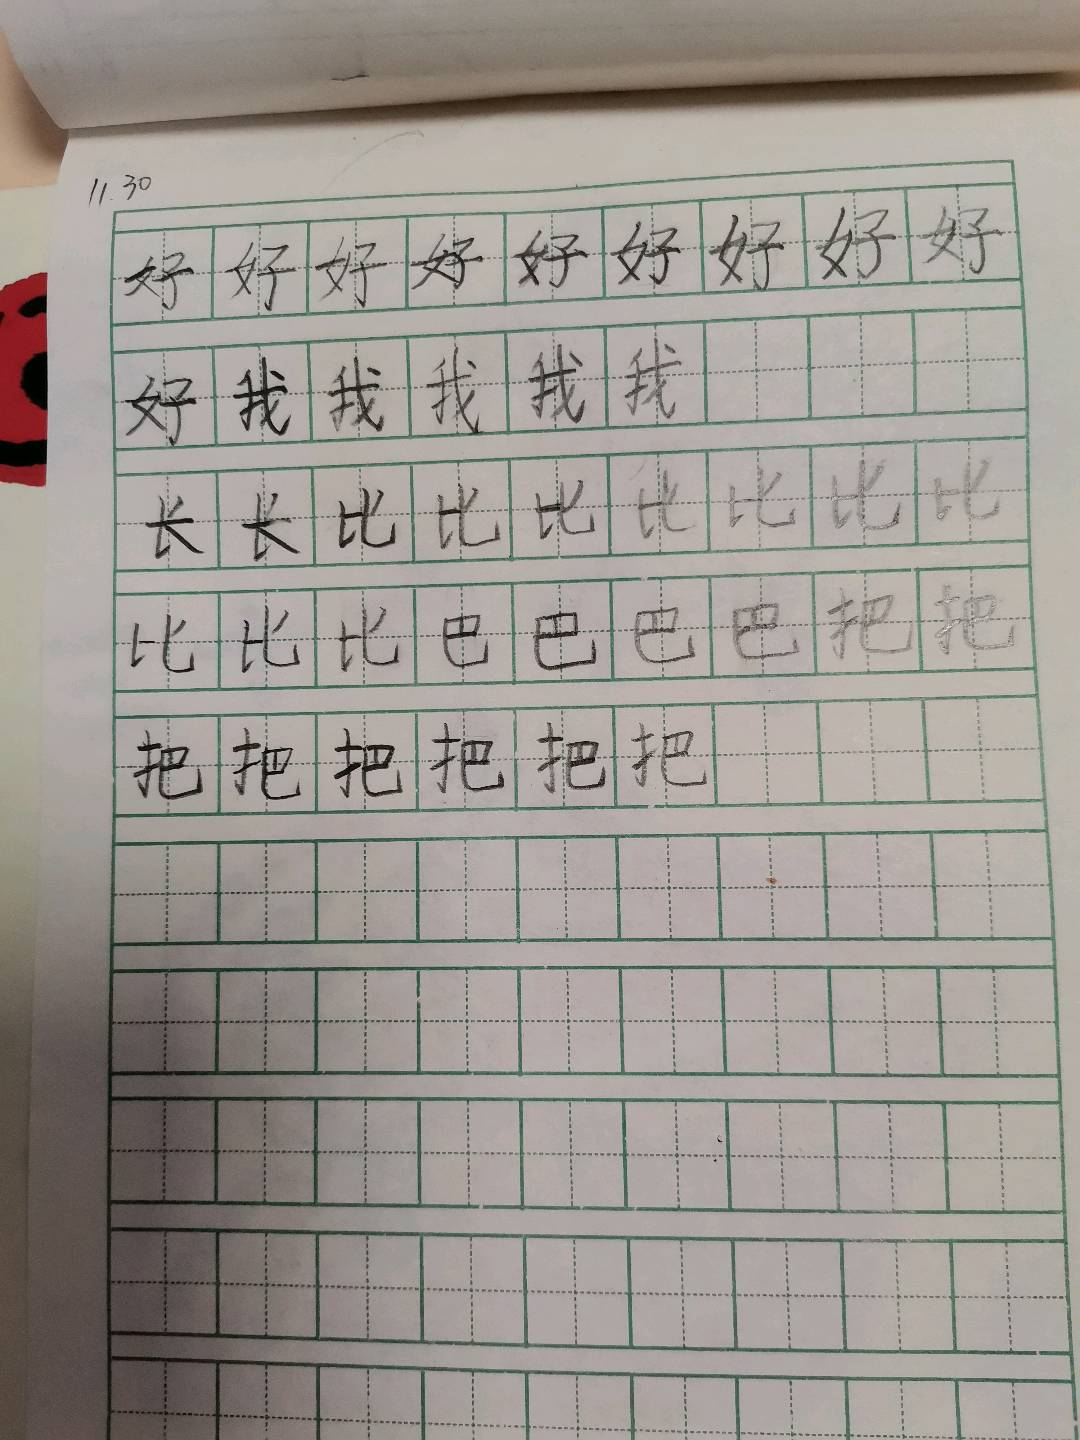 11.30
好好好好好好好好好
好我我我我我
长长比比比比比比比
比比比巴巴巴巴把把
把把把把把把